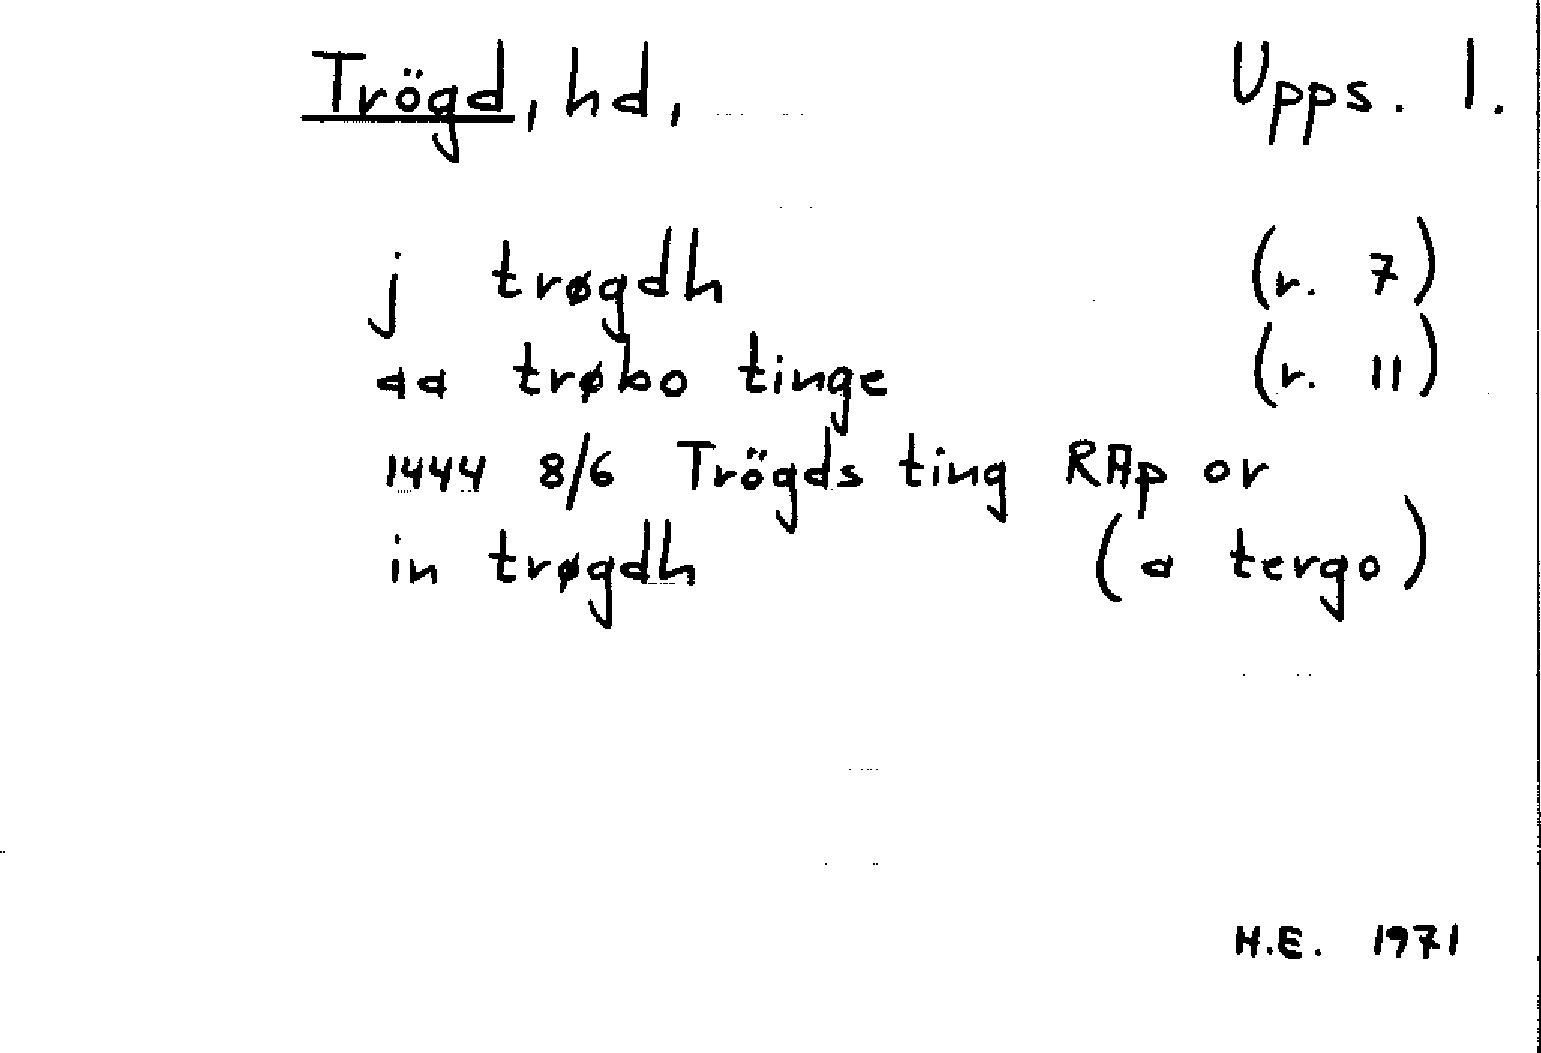 Trögd, hd, Upps. l.
j trøgdh (r. 7)
aa trøbo tinge (r. 11)
1444 8/6 Trögds ting RAp or
in trøgdh (a tergo)
H.E. 1971